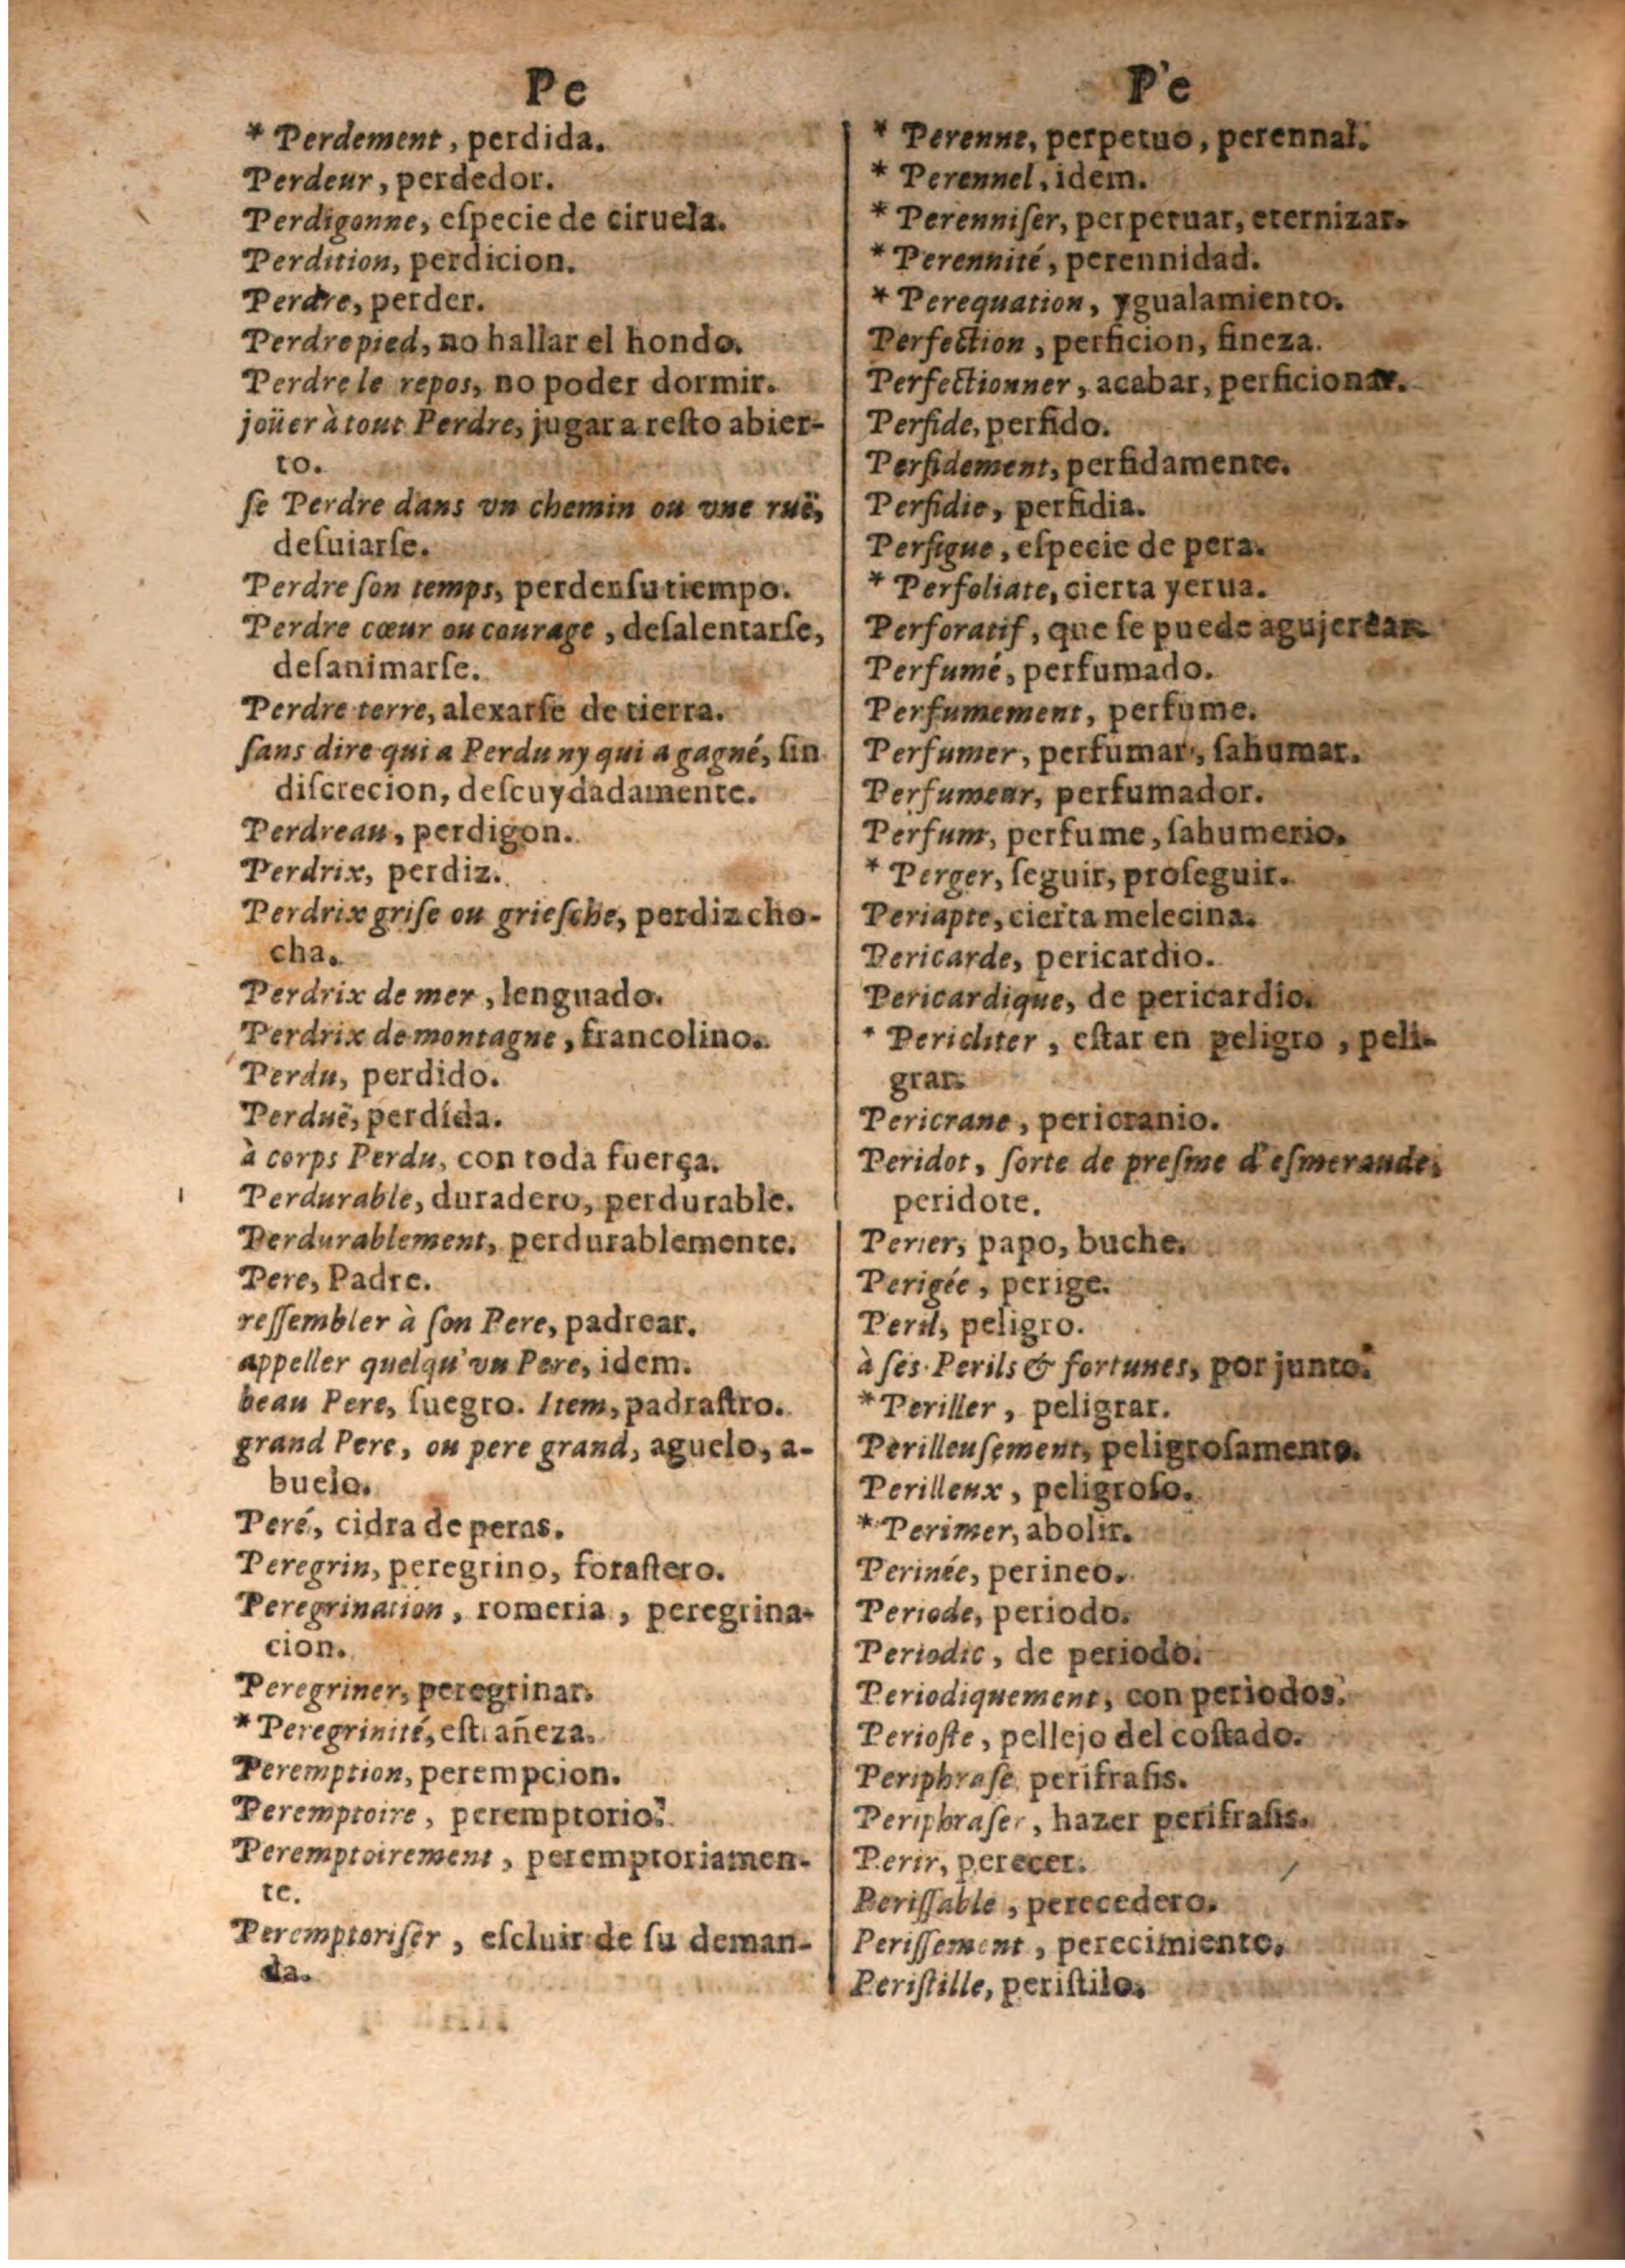 Pe
* Perdement, perdida.
Perdeur, perdedor.
Perdigonne, eſpecie de ciruela.
Perdition, perdicion.
Perdre, perder.
Perdre pied, no hallar el hondo.
Perdre le repos, no poder dormir.
joüer à tout Perdre, jugar a reſto abier-
to.
ſe Perdre dans vn chemin ou vne ruë,
deſuiarſe.
Perdre ſon temps, perdenſu tiempo.
Perdre cœur ou courage, deſalentarſe,
deſanimarſe.
Perdre terre, alexarſe de tierra.
ſans dire qui a Perdu ny qui a gagné, ſin
diſcrecion, deſcuydadamente.
Perdreau, perdigon.
Perdrix, perdiz.
Perdrix griſe ou grieſche, perdiz cho-
cha.
Perdrix de mer, lenguado.
Perdrix de montagne, francolino.
Perdu, perdido.
Perduë, perdída.
à corps Perdu, con toda fuerça.
Perdurable, duradero, perdurable.
Perdurablement, perdurablemente.
Pere, Padre.
reſſembler à ſon Pere, padrear.
appeller quelqu'vn Pere, idem.
beau Pere, ſuegro. Item, padraſtro.
grand Pere, ou pere grand, aguelo, a-
buelo.
Peré, cidra de peras.
Peregrin, peregrino, foraſtero.
Peregrination, romeria, peregrina-
cion.
Peregriner, peregrinar.
* Peregrinité, eſtrañeza.
Peremption, perempcion.
Peremptoire, peremptorio.
Peremptoirement, peremptoriamen-
te.
Peremptoriſer, eſcluir de ſu deman-
da.
Pe
* Perenne, perpetuo, perennal.
* Perennel, idem.
* Perenniſer, perpetuar, eternizar.
* Perennité, perennidad.
* Perequation, ygualamiento.
Perfection, perficion, fineza.
Perfectionner, acabar, perficionar.
Perfide, perfido.
Perfidement, perfidamente.
Perfidie, perfidia.
Perfigue, eſpecie de pera.
* Perfoliate, cierta yerua.
Perforatif, que ſe puede agujerear.
Perfumé, perfumado.
Perfumement, perfume.
Perfumer, perfumar, ſahumar.
Perfumeur, perfumador.
Perfum, perfume, ſahumerio.
* Perger, ſeguir, proſeguir.
Periapte, cierta melecina.
Pericarde, pericardio.
Pericardique, de pericardio.
* Pericliter, eſtar en peligro, peli-
grar.
Pericrane, pericranio.
Peridot, ſorte de preſme d'eſmeraude,
peridote.
Perier, papo, buche.
Perigée, perige.
Peril, peligro.
à ſes Perils & fortunes, por junto.
* Periller, peligrar.
Perilleuſement, peligroſamente.
Perilleux, peligroſo.
* Perimer, abolir.
Perinée, perineo.
Periode, periodo.
Periodic, de periodo.
Periodiquement, con periodos.
Perioſte, pellejo del coſtado.
Periphraſe, perifraſis.
Periphraſer, hazer perifraſis.
Perir, perecer.
Periſſable, perecedero.
Periſſement, perecimiento.
Periſtille, periſtilo.